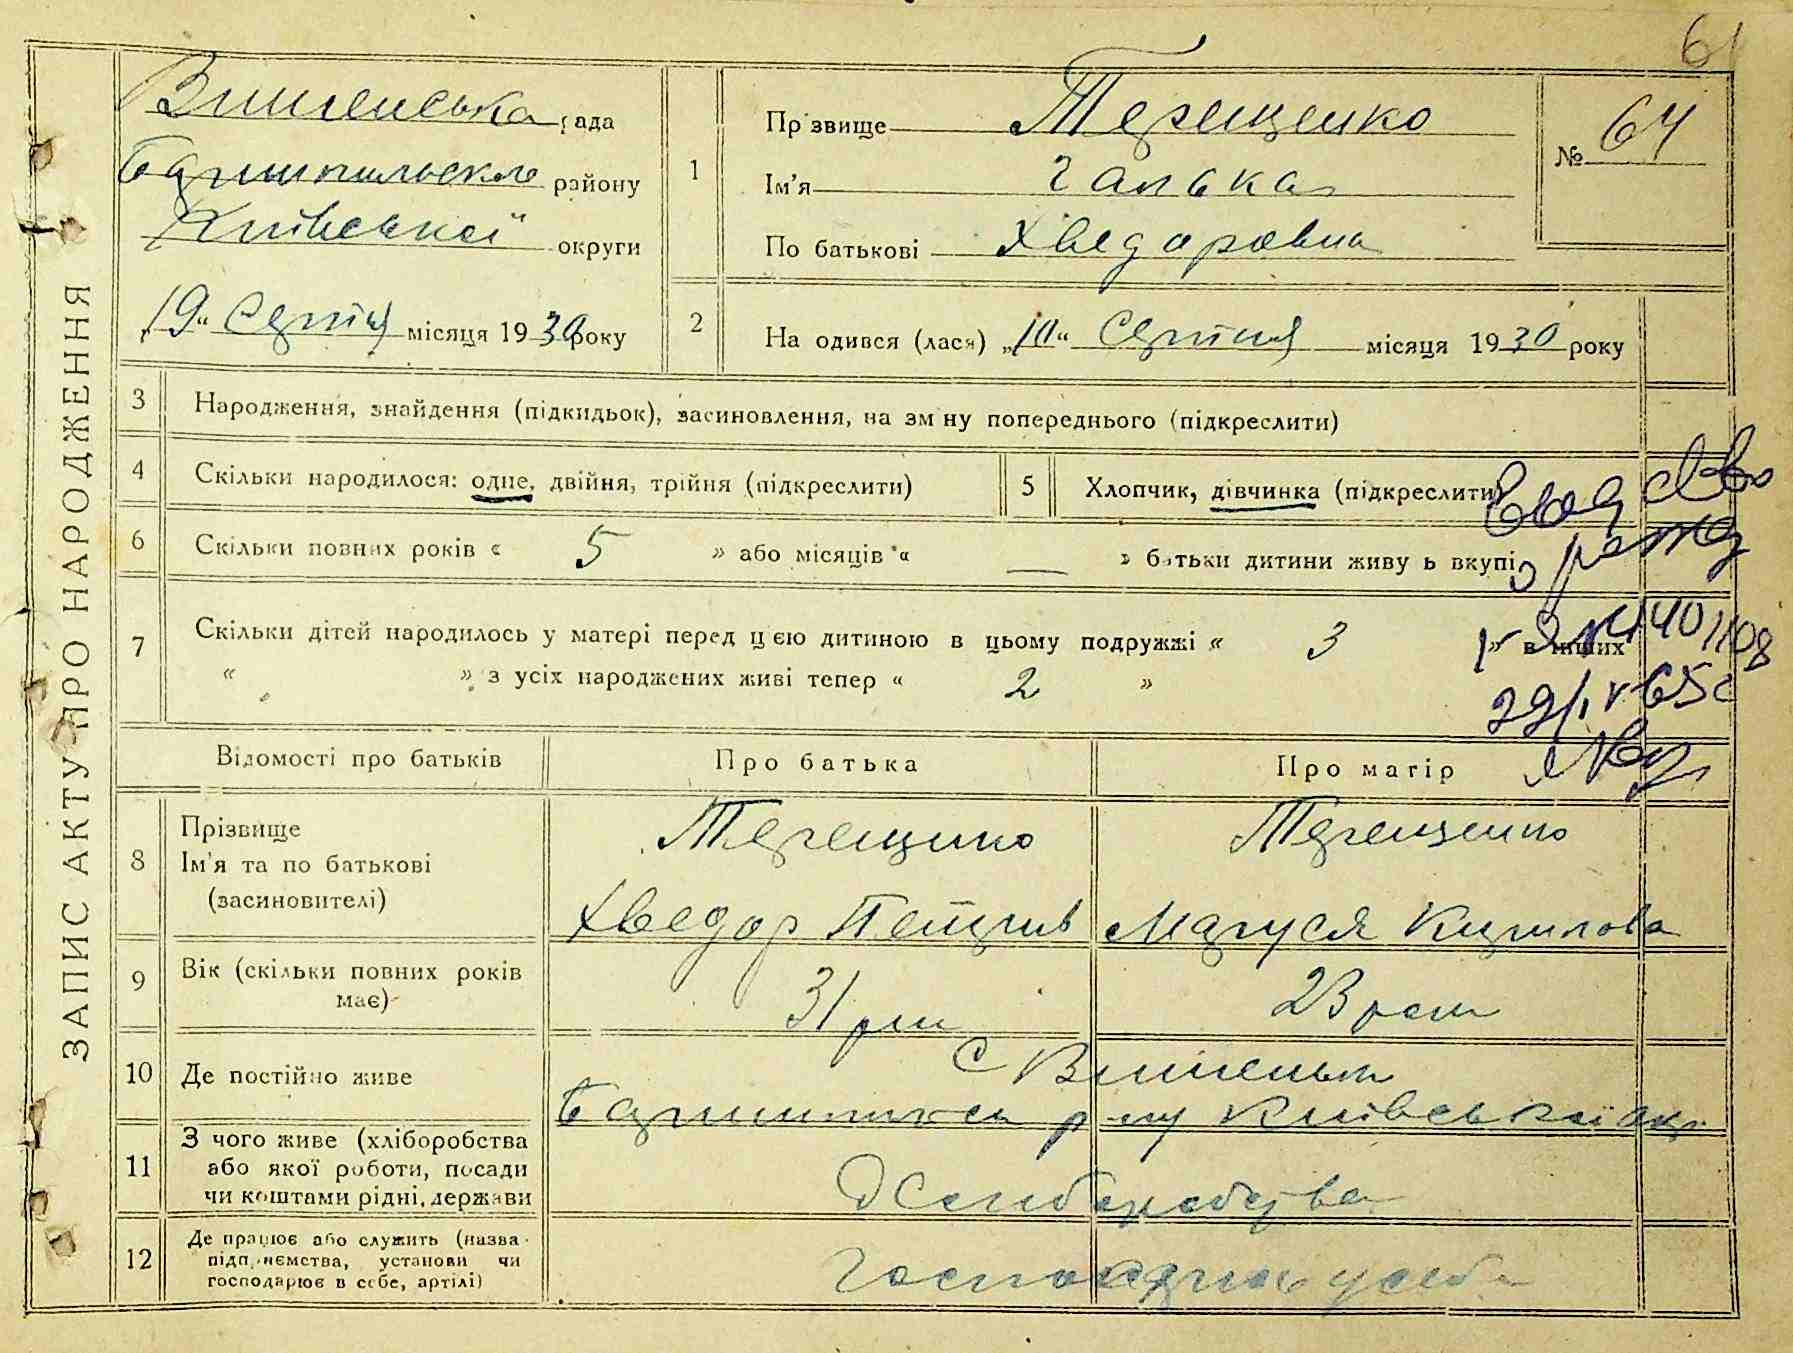 61
ЗАПИС АКТУ ПРО НАРОДЖЕННЯ
Вишенська рада
Баришпільского району
Київської округи
„19“ Серпня місяця 1930 року
1
Пр звище Терещенко
Ім'я Галька
По батькові Хведоровна
№ 64
2
На одився (лася) „10“ Серпня місяця 1930 року
3
Народження, знайдення (підкидьок), засиновлення, на зм ну попереднього (підкреслити)
4
Скільки народилося: одне, двійня, трійня (підкреслити)
5
Хлопчик, дівчинка (підкреслити)
6
Скільки повних років « 5 » або місяців « — » батьки дитини живу ь вкупі
7
Скільки дітей народилось у матері перед цією дитиною в цьому подружжі « 3 » в инших
« » з усіх народжених живі тепер « 2 »
Відомості про батьків
Про батька
Про матір
8
Прізвище
Ім'я та по батькові
(засиновителі)
Терещенко
Хведор Петрив
Терещенко
Маруся Кирилова
9
Вік (скільки повних років
має)
31 рік
23 роки
10
Де постійно живе
С Вишеньки
Баришпільськ р-ну Київської окр.
11
З чого живе (хліборобства
або якої роботи, посади
чи коштами рідні, держави
Хліборобства
12
Де працює або служить (назва
підп иємства, установи чи
господарює в себе, артілі)
Господарює у себе